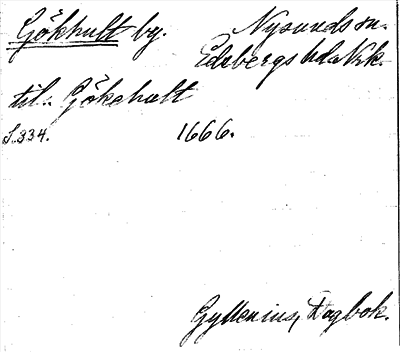 Gökhult by. Nysunds sn.
Edsbergs hd Nke.
til.. Gökehult
S.334. 1666.
Gyllenius, Dagbok.